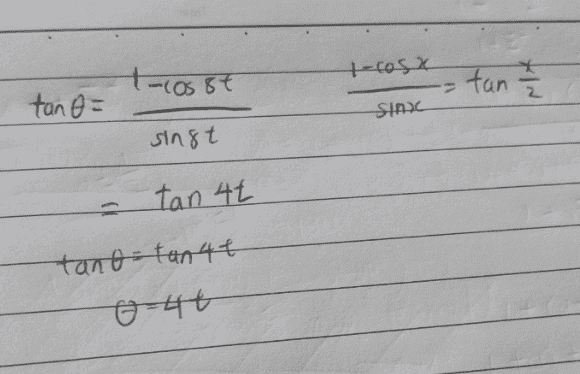 tan θ = (1 - cos 8t) / (sin 8t)
(1 - cos x) / (sin x) = tan x/2
= tan 4t
tan θ = tan 4t
θ = 4t